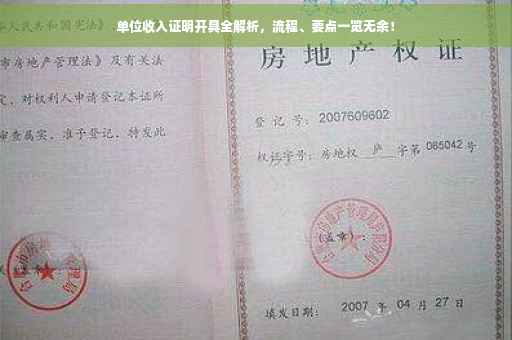 单位收入证明开具全解析，流程、要点一览无余！
华人民共和国宪法》
市房地产管理法》及有关法
定，对权利人申请登记本证所
审查属实，准予登记，特发此
房地产权证
登 记 号：2007609602
权证字号：房地权 庐 字第 085042 号
(盖章)：
填发日期：2007 年 04 月 27 日